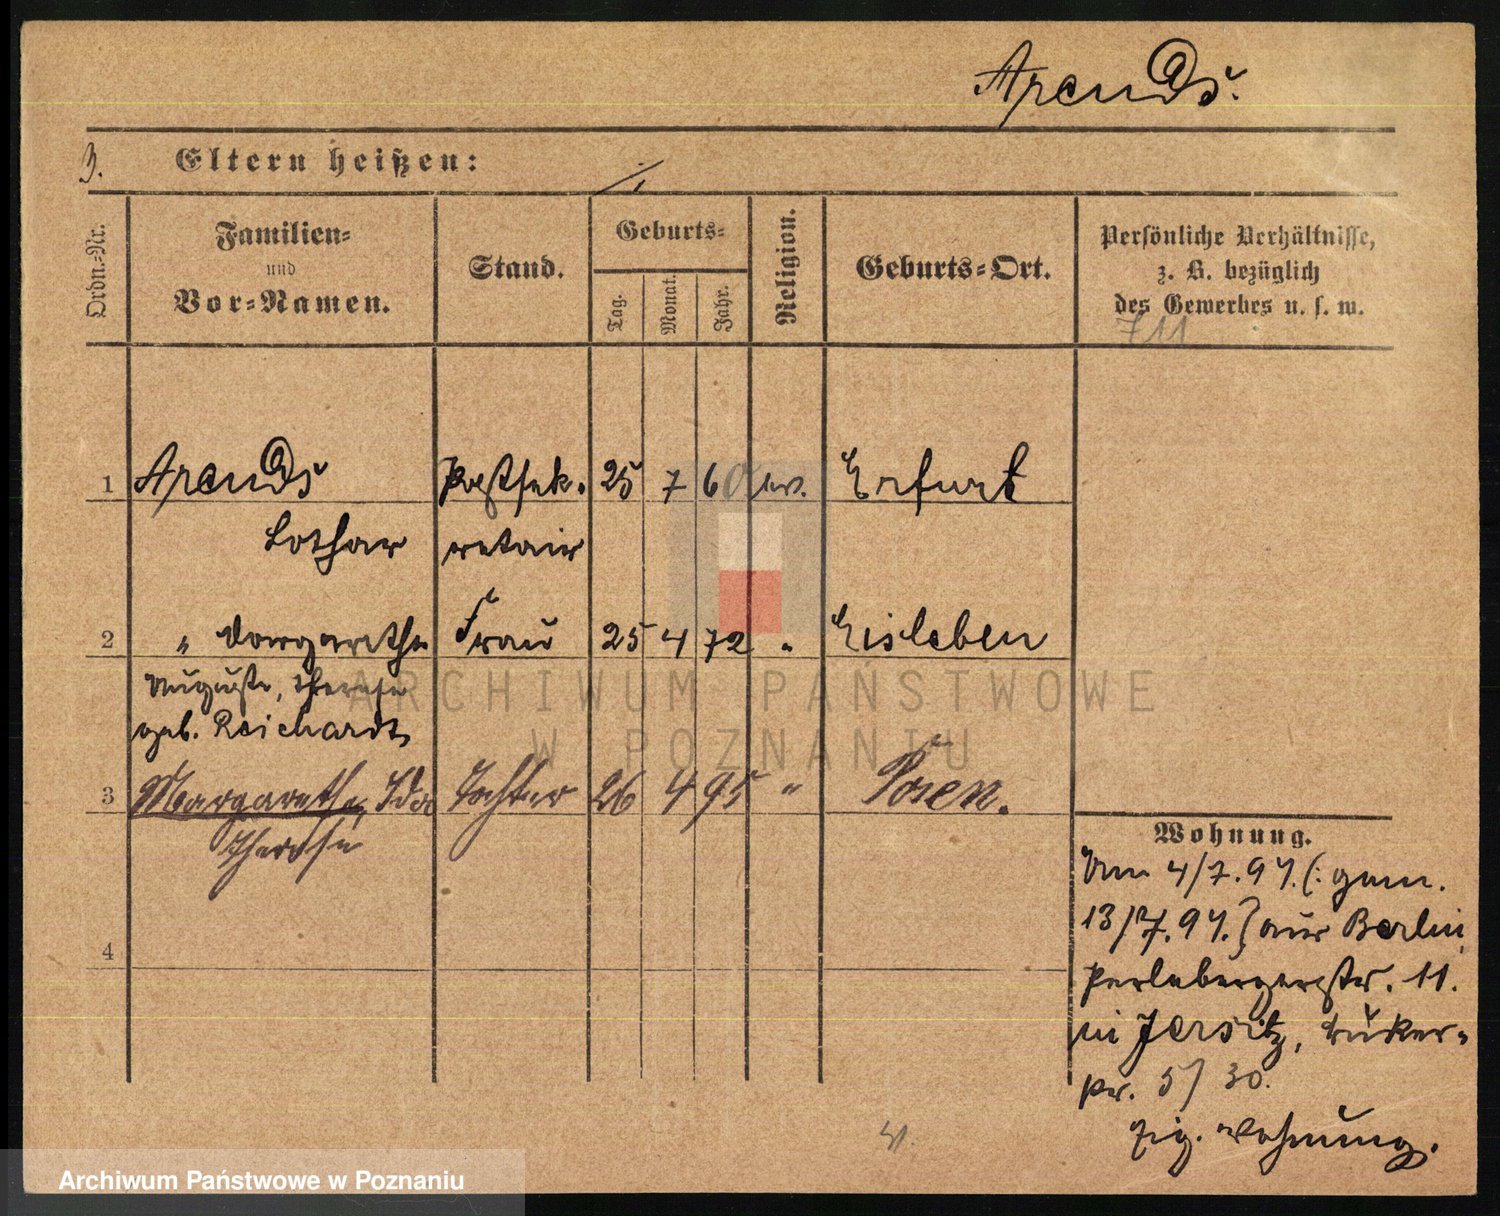 Arends.
3. Eltern heißen:
Ordn.-Nr.
Familien-
und
Vor-Namen.
Stand.
Geburts-
Tag.
Monat.
Jahr.
Religion.
Geburts-Ort.
Persönliche Verhältnisse,
z. B. bezüglich
des Gewerbes u. s. w.
711
1 Arends Postsek- 25 7 60 ev. Erfurt
Lothar retair
2 " Margarethe Frau 25 4 72 " Eisleben
Auguste, Therese
geb. Reichardt
3 Margarethe Ida Tochter 26 4 95 " Posen.
Therese
4
Wohnung.
Am 4/7.94. (: gem.
13/7.94.) aus Berlin,
Perlebergerstr. 11.
in Jersitz,
5/30.
Wohnung.
ARCHIWUM PAŃSTWOWE
W POZNANIU
Archiwum Państwowe w Poznaniu